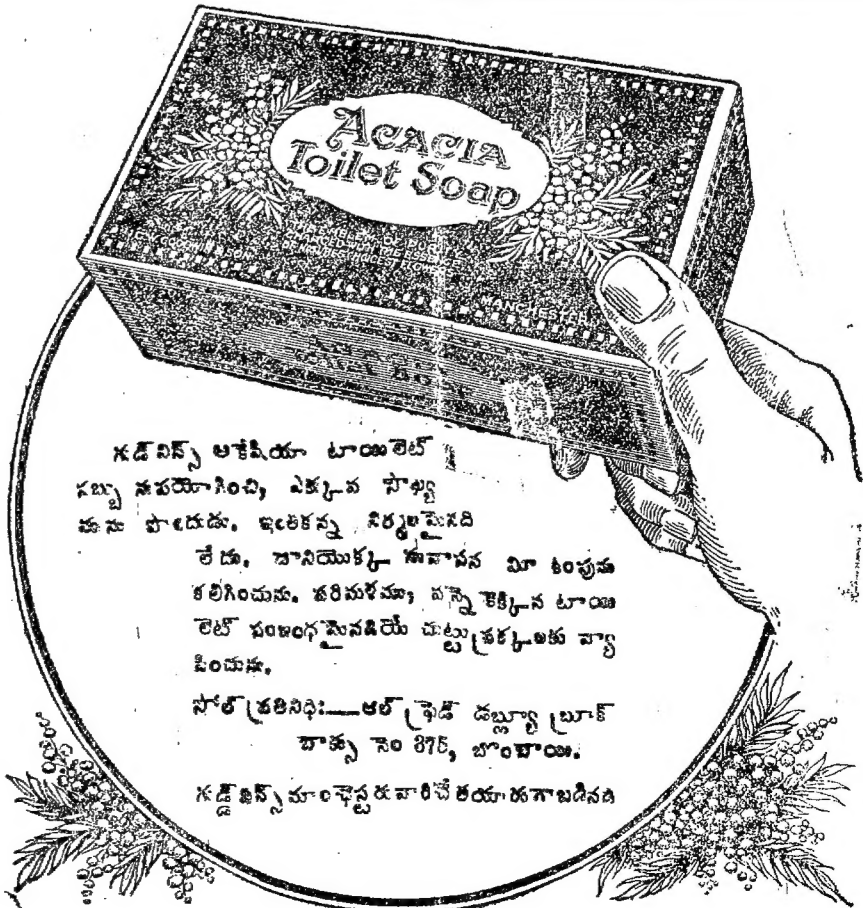 ACACIA
Toilet Soap
MANCHESTER
గుడ్ విన్స్ అకేషియా టాయిలెట్
సబ్బు నుపయోగించి, ఎక్కువ సౌఖ్య
మును పొందుడు. ఇంతకన్న నిర్మలమైనది
లేదు. దానియొక్క సువాసన మీ కింపును
కలిగించును. పరిమళము, వన్నె కెక్కిన టాయి
లెట్ చుట్టు ప్రక్కలకు వ్యా
పించును.
సోల్ ప్రతినిధిః—ఆల్ ఫ్రెడ్ డబ్ల్యూ బ్రూక్
బాక్సు నెం 375, బొంబాయి.
గుడ్ విన్స్ మాంఛెస్టరువారిచే తయారుగాబడినది